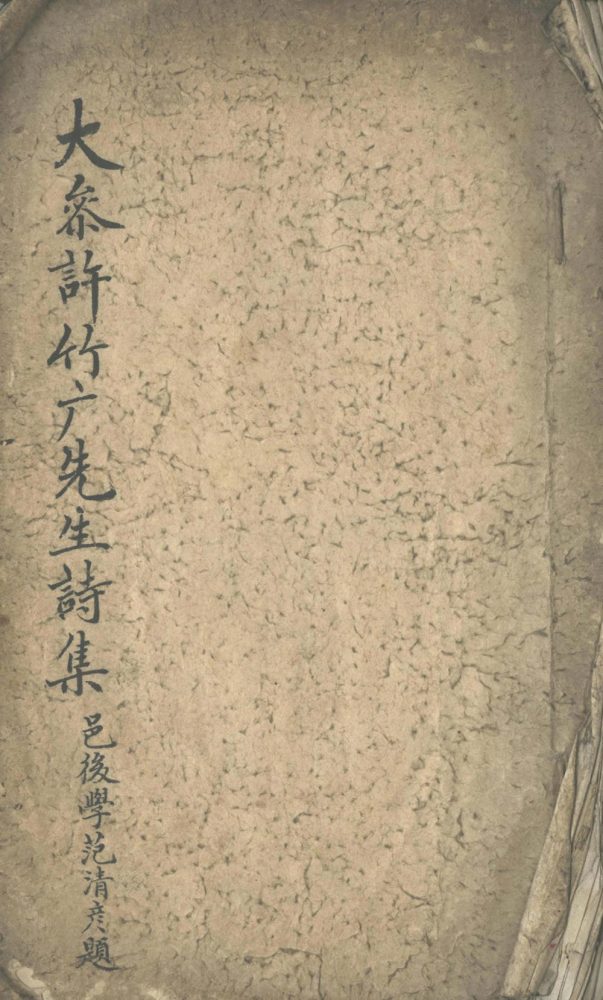 大叅許竹广先生詩集
邑後學范清彥題